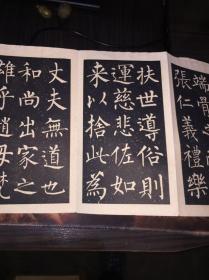 端骨之
張仁義禮樂
扶世導俗則
運慈悲佐如
来以捨此為
丈夫無道也
和尚出家之
雄乎趙母梵